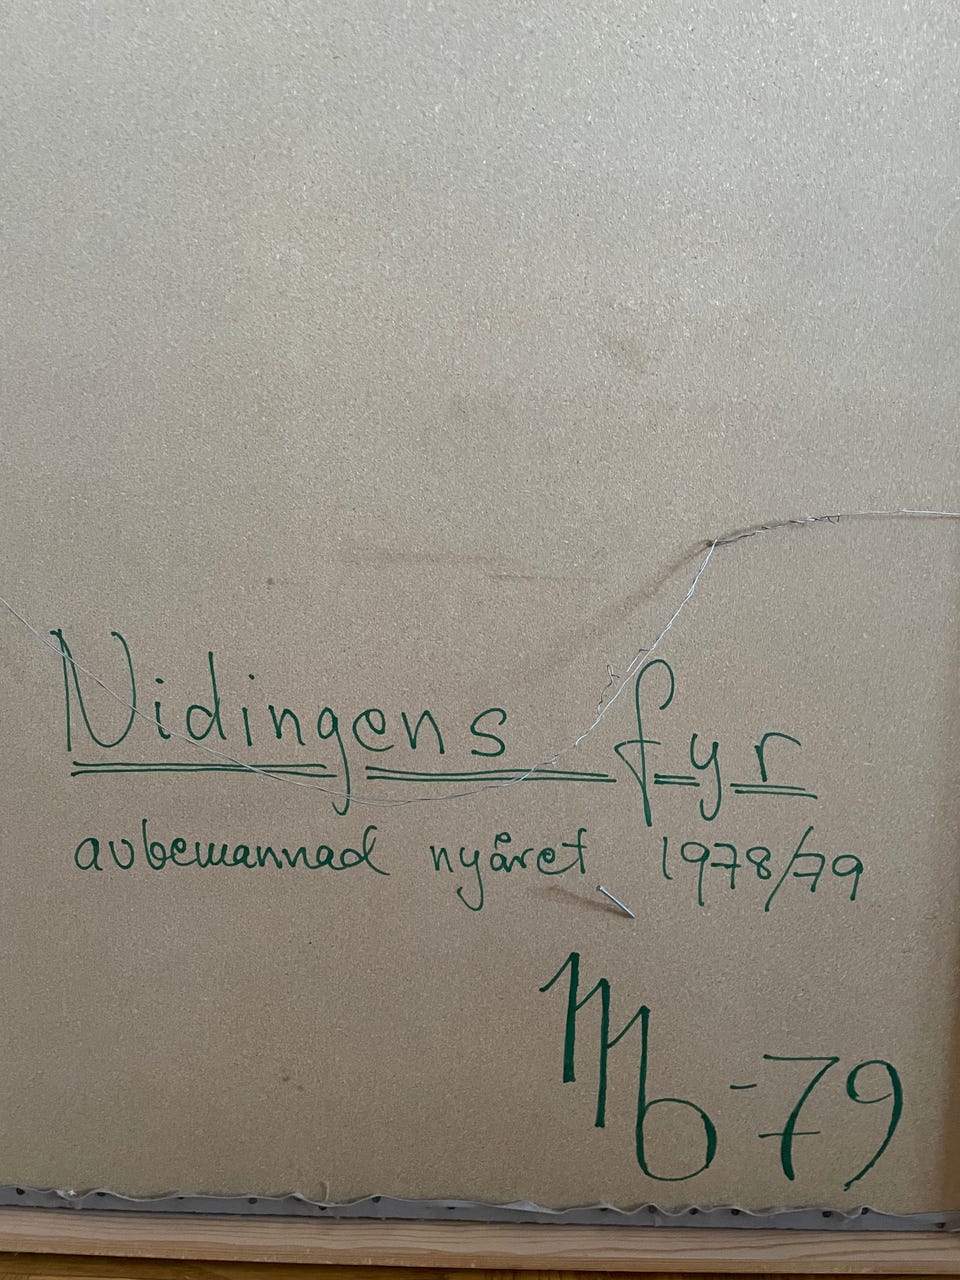 Nidingens fyr
avbemannad nyåret 1978/79
Mb -79